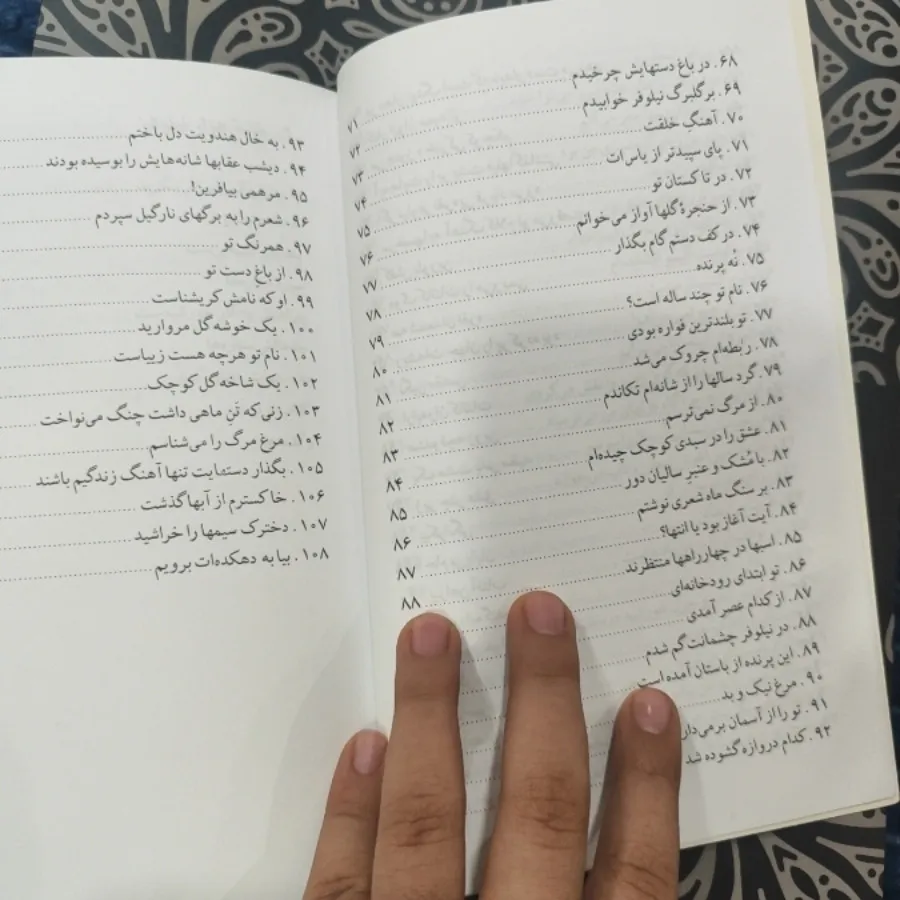 ۶۸. در باغ دستهایش چرخیدم ........ ۷۱
۶۹. برگلبرگ نیلوفر خوابیدم ........ ۷۲
۷۰. آهنگِ خلقت ........ ۷۳
۷۱. پای سپیدتر از یاس‌ات ........ ۷۴
۷۲. در تاکستان تو ........ ۷۵
۷۳. از حنجرهٔ گلها آواز می‌خوانم ........ ۷۶
۷۴. در کف دستم گام بگذار ........ ۷۷
۷۵. نُه پرنده ........ ۷۸
۷۶. نام تو چند ساله است؟ ........ ۷۹
۷۷. تو بلندترین فواره بودی ........ ۸۰
۷۸. رابطه‌ام چروک می‌شد ........ ۸۱
۷۹. گرد سالها را از شانه‌ام تکاندم ........ ۸۲
۸۰. از مرگ نمی‌ترسم ........ ۸۳
۸۱. عشق را در سبدی کوچک چیده‌ام ........ ۸۴
۸۲. با مُشک و عنبرِ سالیان دور ........ ۸۵
۸۳. بر سنگ ماه شعری نوشتم ........ ۸۶
۸۴. آیت آغاز بود یا انتها؟ ........ ۸۷
۸۵. اسبها در چهارراهها منتظرند ........ ۸۸
۸۶. تو ابتدای رودخانه‌ای
۸۷. از کدام عصر آمدی
۸۸. در نیلوفر چشمانت گم شدم
۸۹. این پرنده از باستان آمده است
۹۰. مرغ نیک و بد
۹۱. تو را از آسمان برمی‌دار
۹۲. کدام دروازه گشوده شد
۹۳. به خال هندویت دل باختم
۹۴. دیشب عقابها شانه‌هایش را بوسیده بودند
۹۵. مرهمی بیافرین!
۹۶. شعرم را به برگهای نارگیل سپردم
۹۷. همرنگ تو
۹۸. از باغِ دست تو
۹۹. او که نامش کریشناست
۱۰۰. یک خوشه گل مروارید
۱۰۱. نام تو هرچه هست زیباست
۱۰۲. یک شاخه گل کوچک
۱۰۳. زنی که تنِ ماهی داشت چنگ می‌نواخت
۱۰۴. مرغ مرگ را می‌شناسم
۱۰۵. بگذار دستهایت تنها آهنگ زندگیم باشند
۱۰۶. خاکسترم از آبها گذشت
۱۰۷. دخترک سیمها را خراشید
۱۰۸. بیا به دهکده‌ات برویم